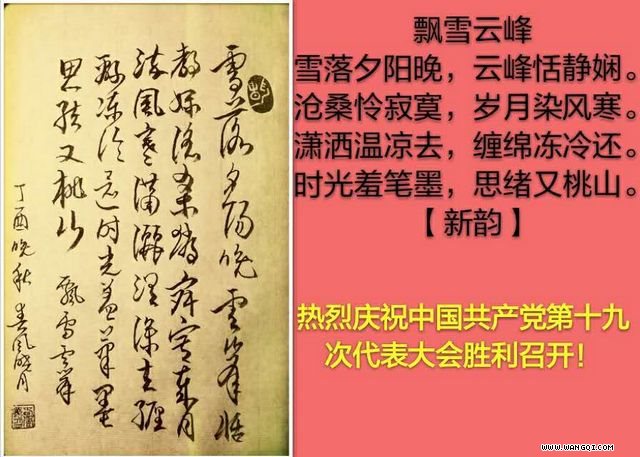 雪落夕阳晚云峰恬
静娴沧桑怜寂寞岁月
染风寒潇洒温凉去缠
绵冻冷还时光羞笔墨
思绪又桃山
丁酉晚秋 飘雪云峰
飘雪云峰
雪落夕阳晚，云峰恬静娴。
沧桑怜寂寞，岁月染风寒。
潇洒温凉去，缠绵冻冷还。
时光羞笔墨，思绪又桃山。
【新韵】
热烈庆祝中国共产党第十九
次代表大会胜利召开！
WWW.WANGQI.COM